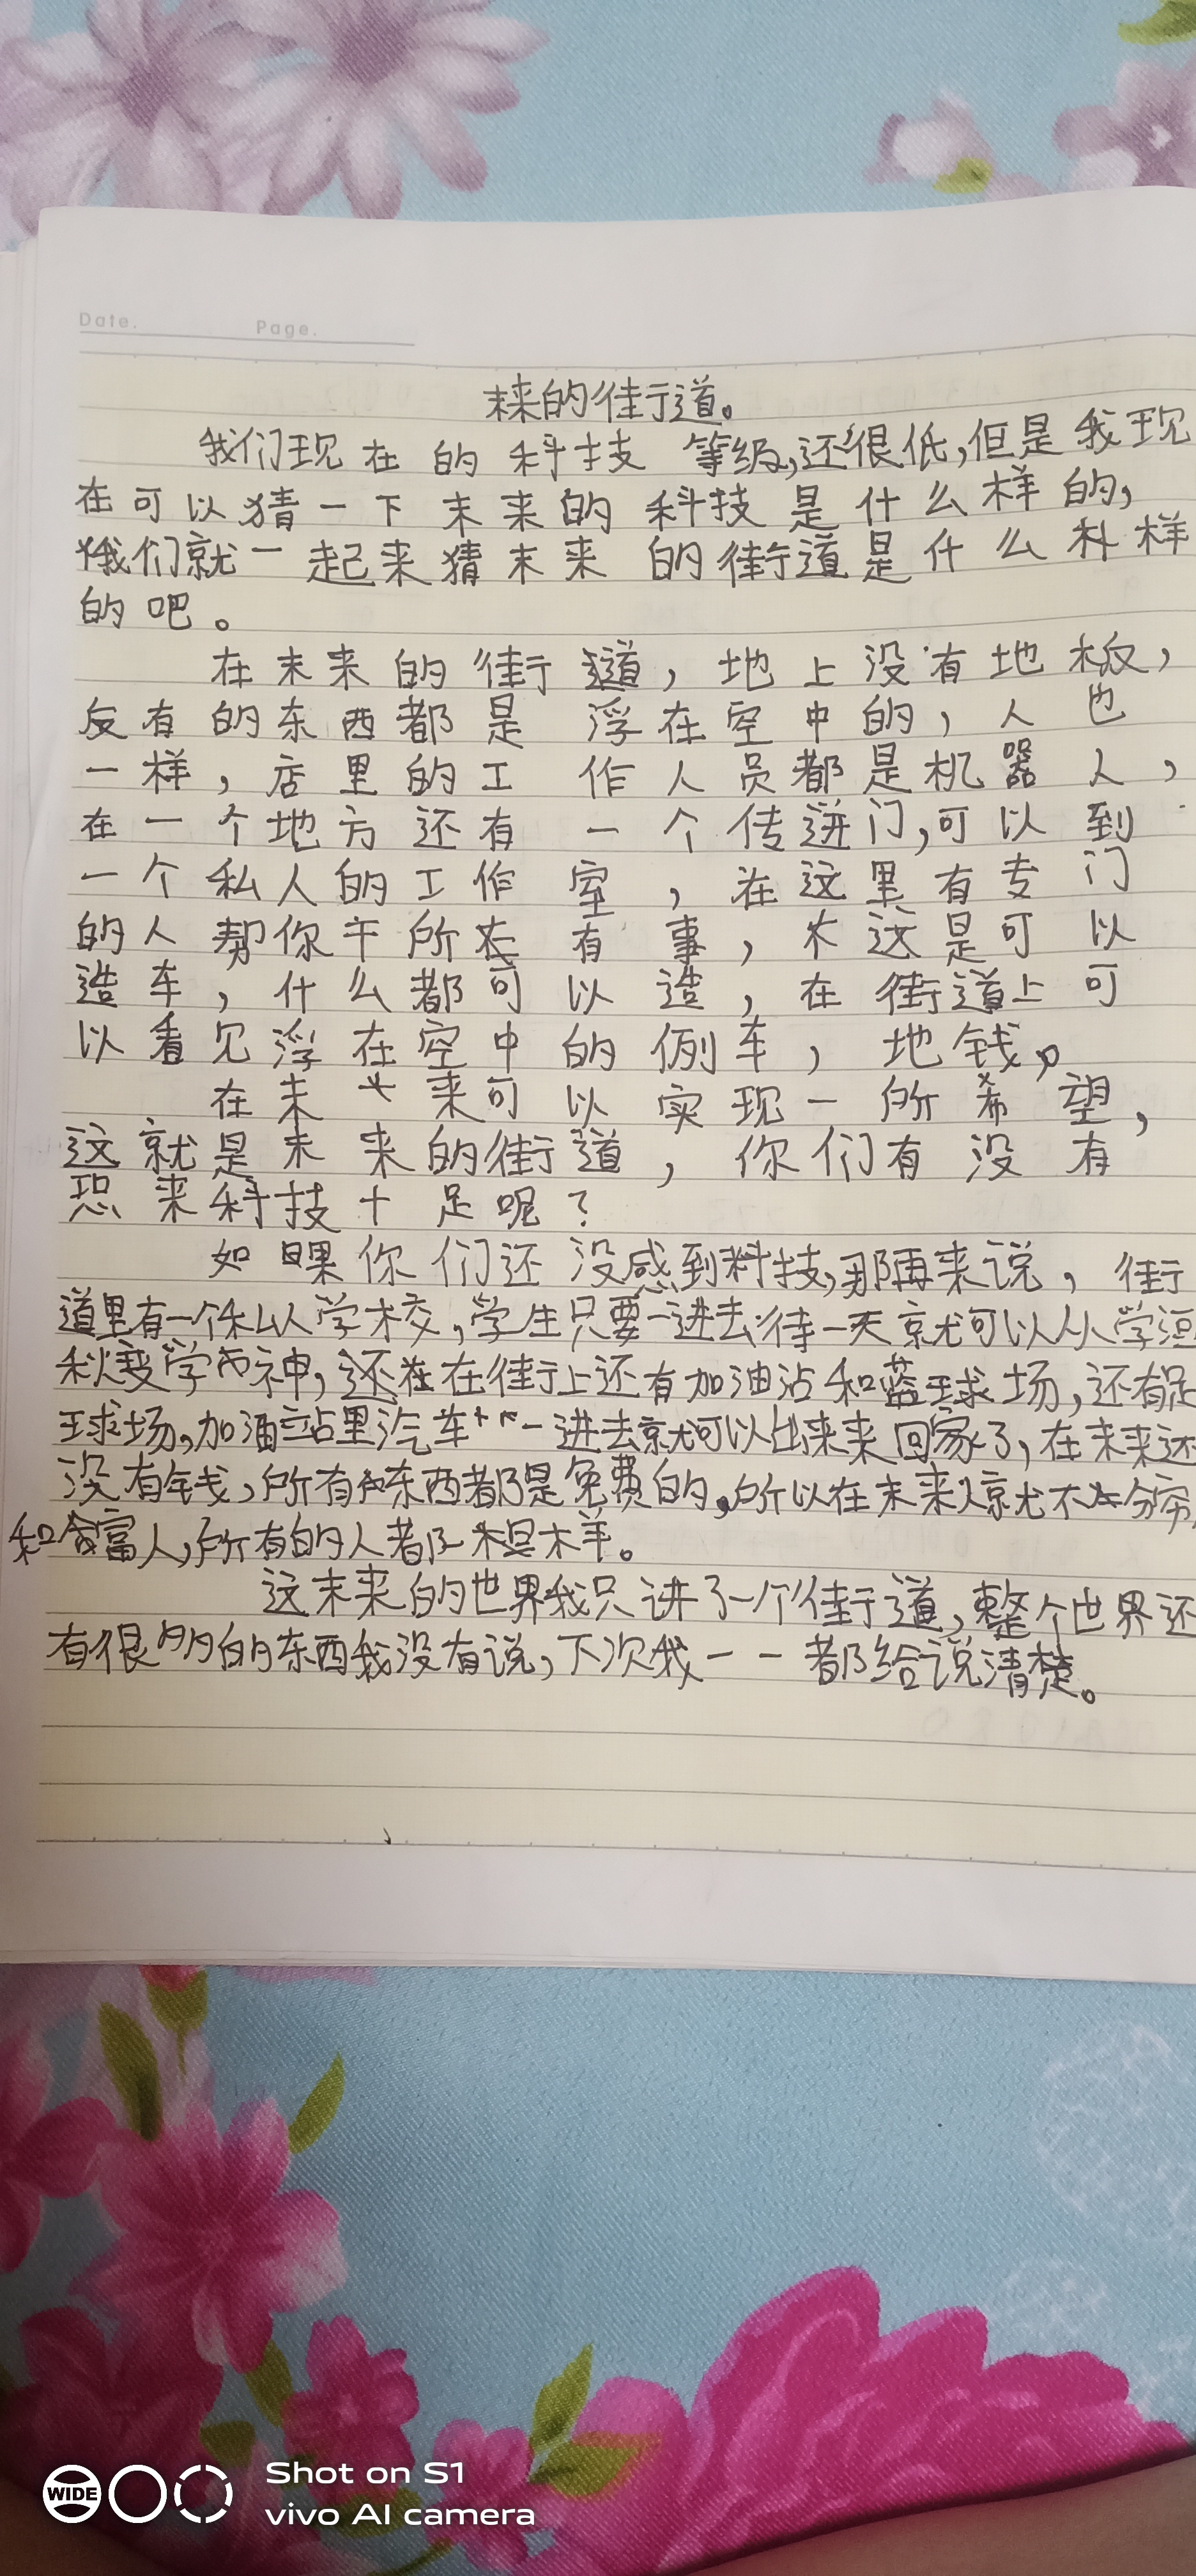 Date. Page.
未来的街道。
我们现在的科技等级,还很低,但是我现
在可以猜一下未来的科技是什么样的,
我们就一起来猜未来的街道是什么样
的吧。
在未来的街道,地上没有地板,
反有的东西都是浮在空中的,人也
一样,店里的工作人员都是机器人,
在一个地方还有一个传送门,可以到
一个私人的工作室,在这里有专门
的人帮你干所有事,这是可以
造车,什么都可以造,在街道上可
以看见浮在空中的例车,地钱。
在未来可以实现一所希望,
这就是未来的街道,你们有没有
恐来科技十足呢?
如果你们还没感到科技,那再来说,街
道里有一个私人学校,学生只要一进去待一天就可以从学渣
变学神,还在街上还有加油站和蓝球场,还有足
球场。加油站里汽车一进去就可以出来来回家了,在未来还
没有钱,所有的东西都是免费的。所以在未来就不分穷
和富人,所有的人都一样。
这未来的世界我只讲了一个街道,整个世界还
有很多的东西我没有说,下次我一一都给说清楚。
WIDE
Shot on S1
vivo AI camera